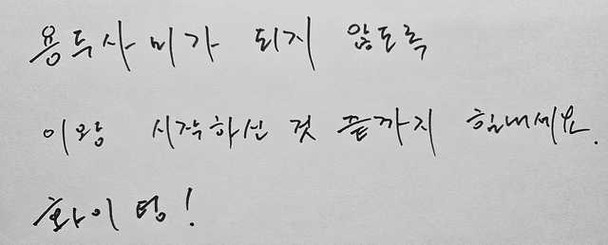 용두사미가 되지 않도록
이왕 시작하신 것 끝까지 힘내세요.
화이팅!